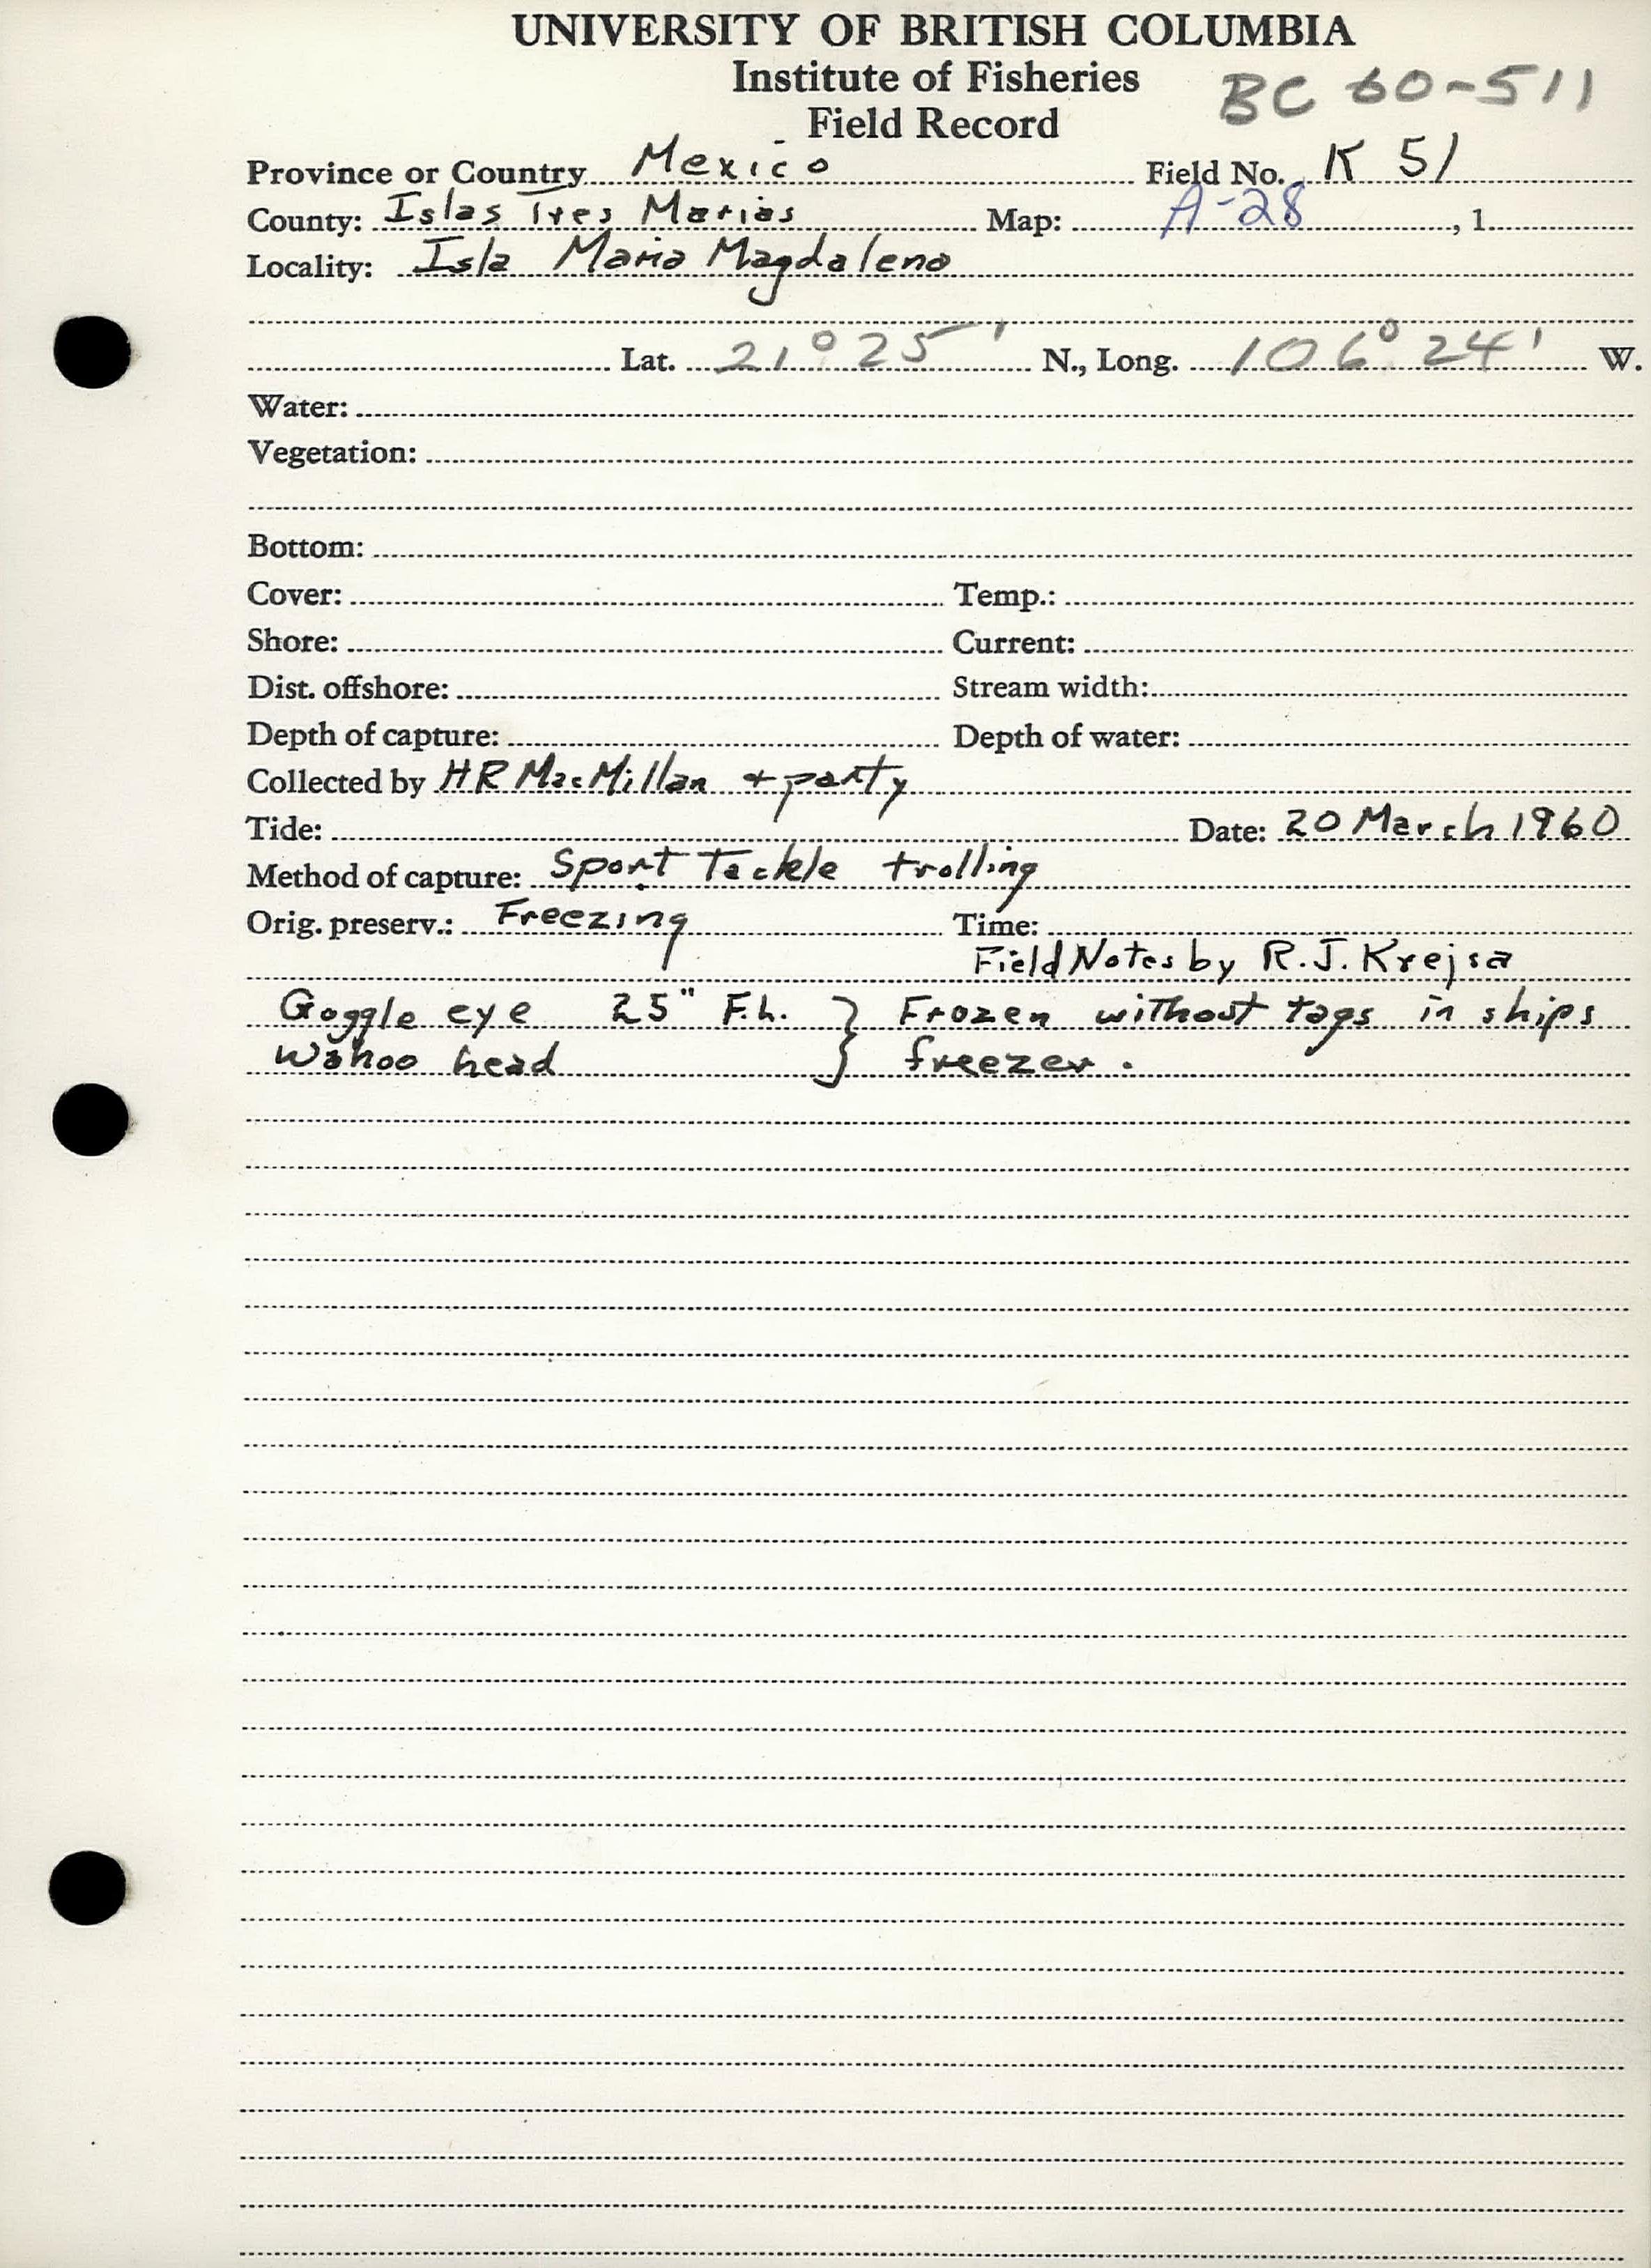 UNIVERSITY OF BRITISH COLUMBIA
Institute of Fisheries
BC 60-511
Field Record
Province or Country Mexico Field No. K 51
County: Islas Tres Marias Map: A-28 , 1
Locality: Isla Maria Magdalena
Lat. 21° 25' N., Long. 106° 24' W.
Water:
Vegetation:
Bottom:
Cover: Temp.:
Shore: Current:
Dist. offshore: Stream width:
Depth of capture: Depth of water:
Collected by HR MacMillan + party
Tide: Date: 20 March 1960
Method of capture: Sport Tackle trolling
Orig. preserv.: Freezing Time:
Field Notes by R.J. Krejsa
Goggle eye 25" F.L. } Frozen without tags in ships
Wahoo head } freezer.